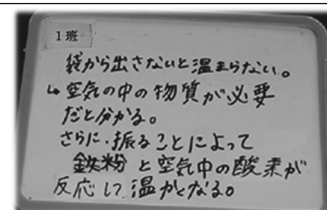 1班
袋から出さないと温まらない。
↳空気の中の物質が必要
だと分かる。
さらに、振ることによって
鉄粉と空気中の酸素が
反応して温かくなる。